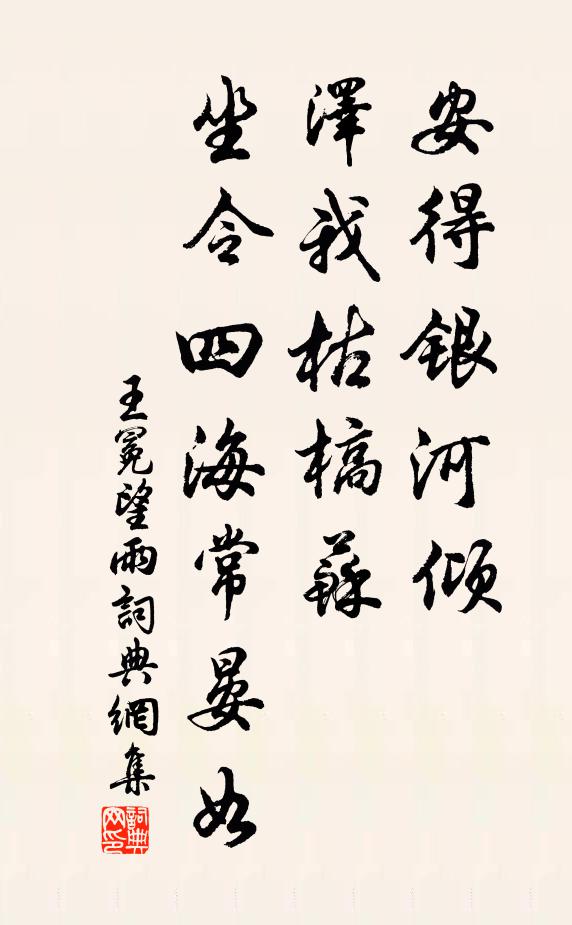 安得銀河傾
澤我枯槁蘇
坐令四海常晏如
王冕望雨詞典網集
詞典
网印